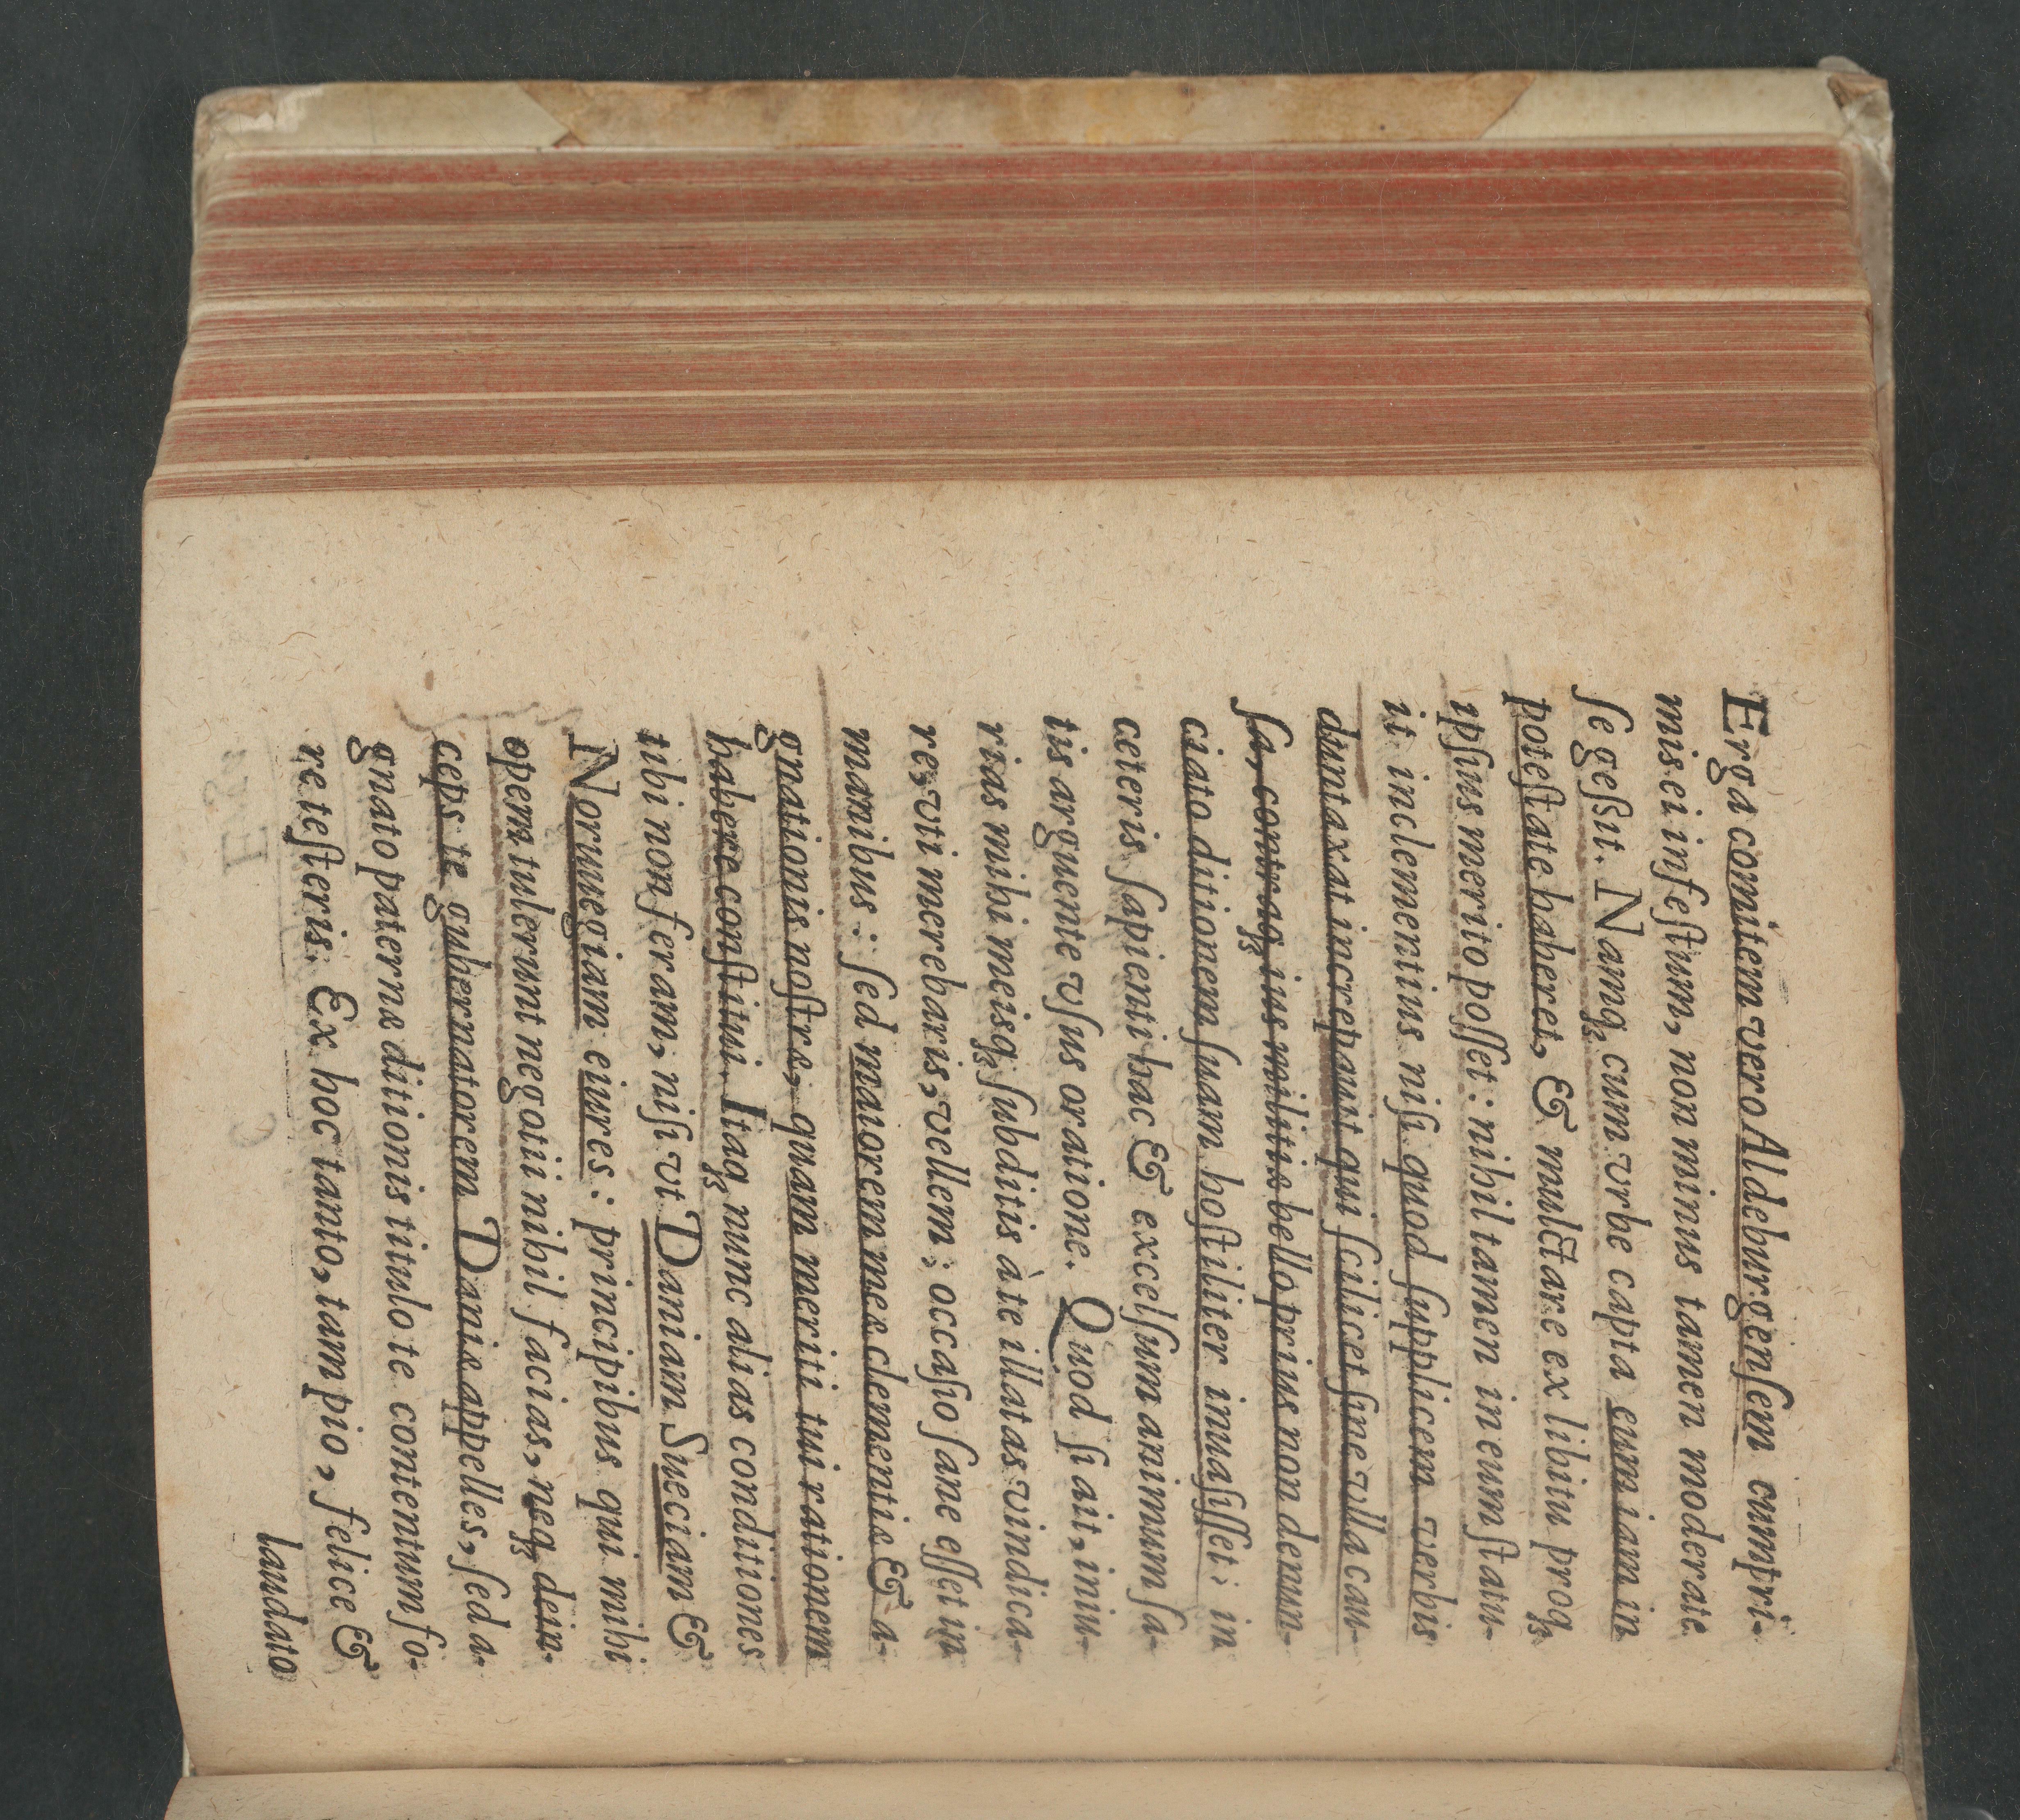 Erga comitem vero Aldeburgenſem cumpri-
mis ei infeſtum, non minus tamen moderate
ſe geſsit. Namq; cum vrbe capta eum iam in
poteſtate haberet, & mulctare ex libitu proq;
ipſius merito poſſet: nihil tamen in eum ſtatu-
it inclementius niſi quod ſupplicem verbis
duntaxat increpauit qui ſcilicet ſine vlla cau-
ſa, contraq; ius militiæ bello prius non denun-
ciato ditionem ſuam hoſtiliter inuaſiſſet: in
ceteris ſapienti hac & excelſum animum ſa-
tis arguente vſus oratione. Quod ſi ait, iniu-
rias mihi meisq; ſubditis à te illatas vindica-
re, vti merebaris, vellem: occaſio ſane eſſet in
manibus: ſed maiorem meæ clementiæ & a-
gnationis noſtræ, quam meriti tui rationem
habere conſtitui. Itaq; nunc alias conditiones
tibi non feram, niſi vt Daniam Sueciam &
Noruuegiam eiures: principibus qui mihi
opem tulerunt negotii nihil facias, neq; dein-
ceps te gubernatorem Daniæ appelles, ſed a-
gnato paternæ ditionis titulo te contentum fo-
re teſteris. Ex hoc tanto, tam pio, felice &
laudato